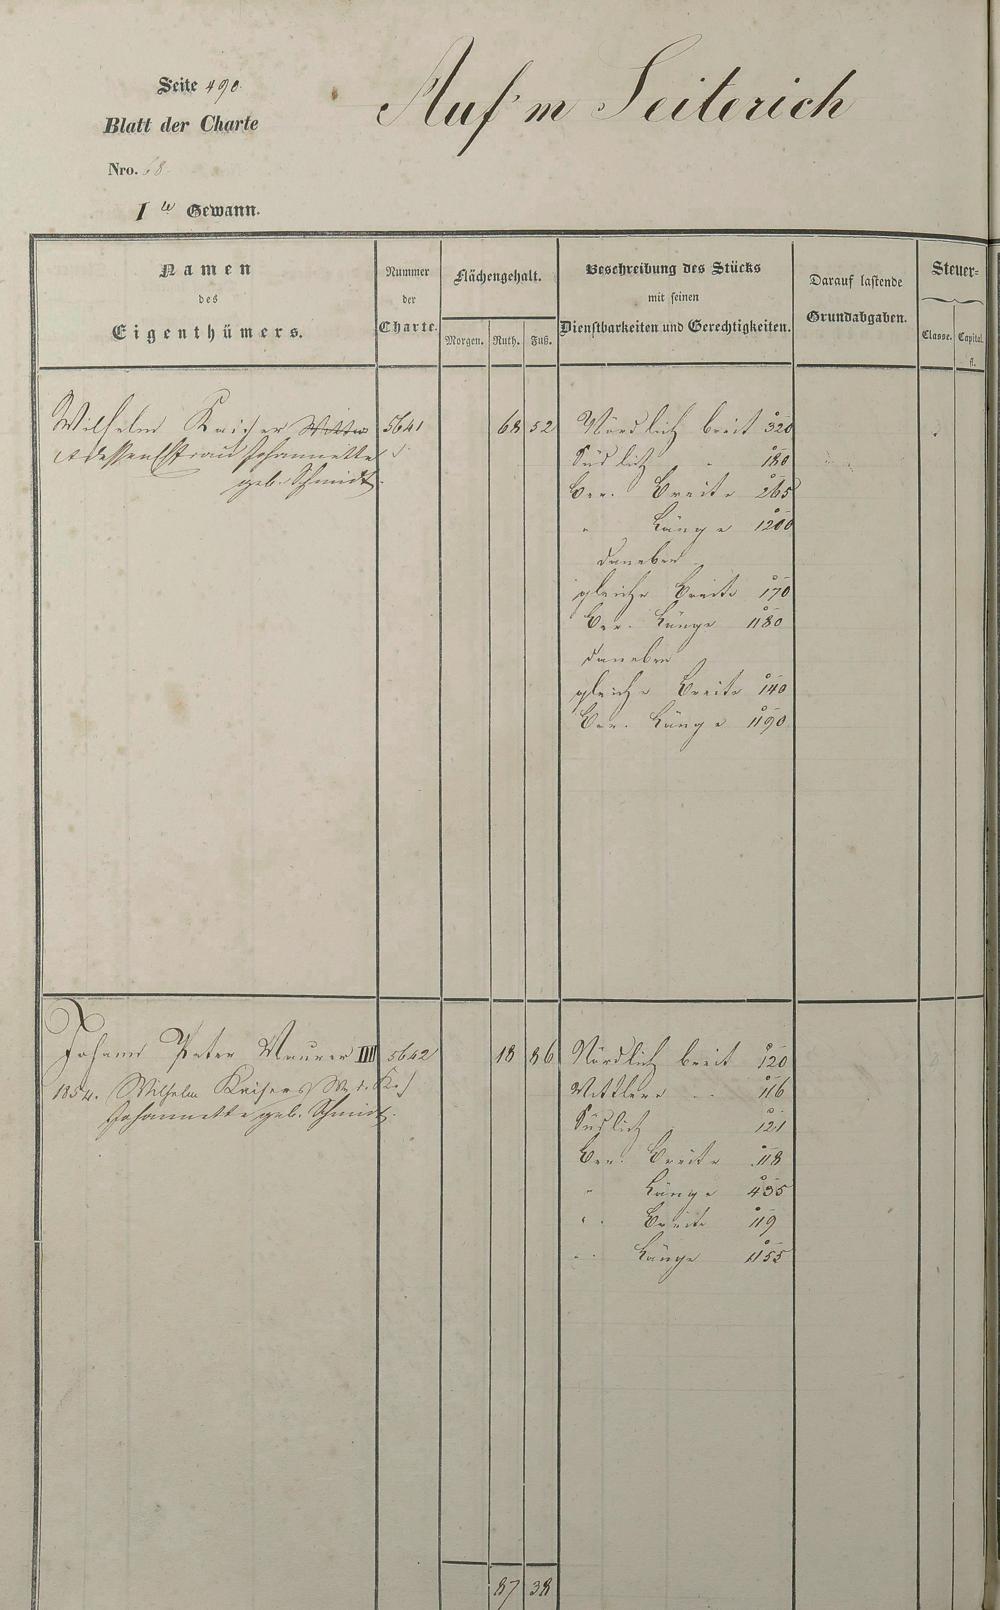 Seite 490.
Blatt der Charte
Nro. 68.
I te Gewann.
Auf'm Seiterich
Namen
des
Eigenthümers.
Nummer
der
Charte.
Flächengehalt.
Morgen. Ruth. Fuß.
Beschreibung des Stücks
mit seinen
Dienstbarkeiten und Gerechtigkeiten.
Darauf lastende
Grundabgaben.
Steuer=
Classe. Capital.
fl.
Wilhelm Kaiser 5641 68 52 Nördlich breit 320
dessen Ehefrau Johannette Südlich " 180
geb. Schmidt. Ber. Breite 265
" Länge 1200
daneben
gleiche Breite 170
Ber. Länge 1180
daneben
gleiche Breite 140
Ber. Länge 1190
Johann Peter Maurer III 5642 18 86 Nördlich breit 120
1854. Wilhelm Kaisers Mittlere " 116
Johannette geb. Schmidt. Südlich 121
Ber. Breite 118
" Länge 435
" Breite 119
" Länge 1155
87 38